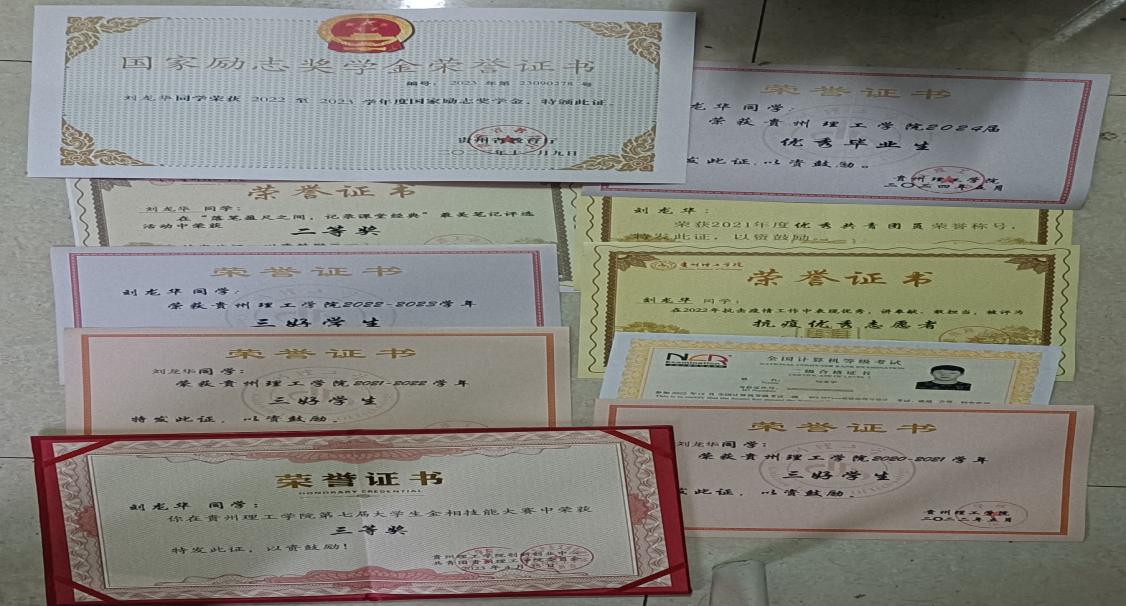 国家励志奖学金荣誉证书
编号: 2023 年第 23090278 号
刘龙华同学荣获 2022 至 2023 学年度国家励志奖学金，特颁此证。
贵州省教育厅
荣誉证书
龙华同学:
荣获贵州理工学院2024届
优秀毕业生
发此证，以资鼓励。
贵州理工学院
二〇二四年五月
荣誉证书
刘龙华 同学:
在“落笔盈尺之间，记录课堂经典”最美笔记评选
活动中荣获
二等奖
刘龙华:
荣获2021年度优秀共青团员荣誉称号，
特发此证，以资鼓励。
荣誉证书
刘龙华同学:
荣获贵州理工学院2022-2023学年
三好学生
贵州理工学院
荣誉证书
刘龙华 同学:
在2022年抗击疫情工作中表现优秀，讲奉献、敢担当，被评为
抗疫优秀志愿者
荣誉证书
刘龙华同学:
荣获贵州理工学院2021-2022学年
三好学生
特发此证，以资鼓励。
NCR
全国计算机等级考试
级合格证书
荣誉证书
刘龙华同学:
荣获贵州理工学院2020-2021学年
三好学生
发此证，以资鼓励。
贵州理工学院
二〇二二年五月
荣誉证书
HONORARY CREDENTIAL
刘龙华 同学:
你在贵州理工学院第七届大学生金相技能大赛中荣获
三等奖
特发此证，以资鼓励!
贵州理工学院创新创业中心
共青团贵州理工学院委员会